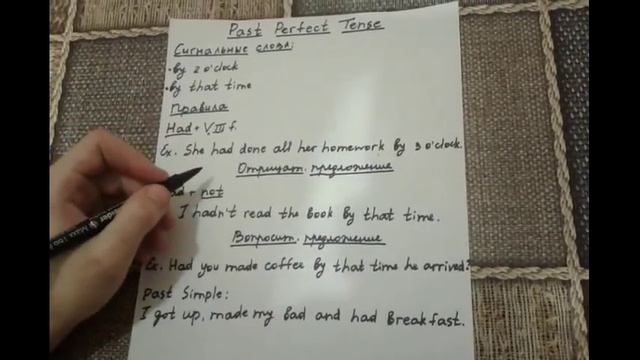 Past Perfect Tense
Сигнальные слова:
• by 2 o'clock
• by that time
Правила
Had + V III f.
Ex. She had done all her homework by 3 o'clock.
Отрицат. предложение
+ not
I hadn't read the book by that time.
Вопросит. предложение
Ex. Had you made coffee by that time he arrived?
Past Simple:
I got up, made my bad and had breakfast.